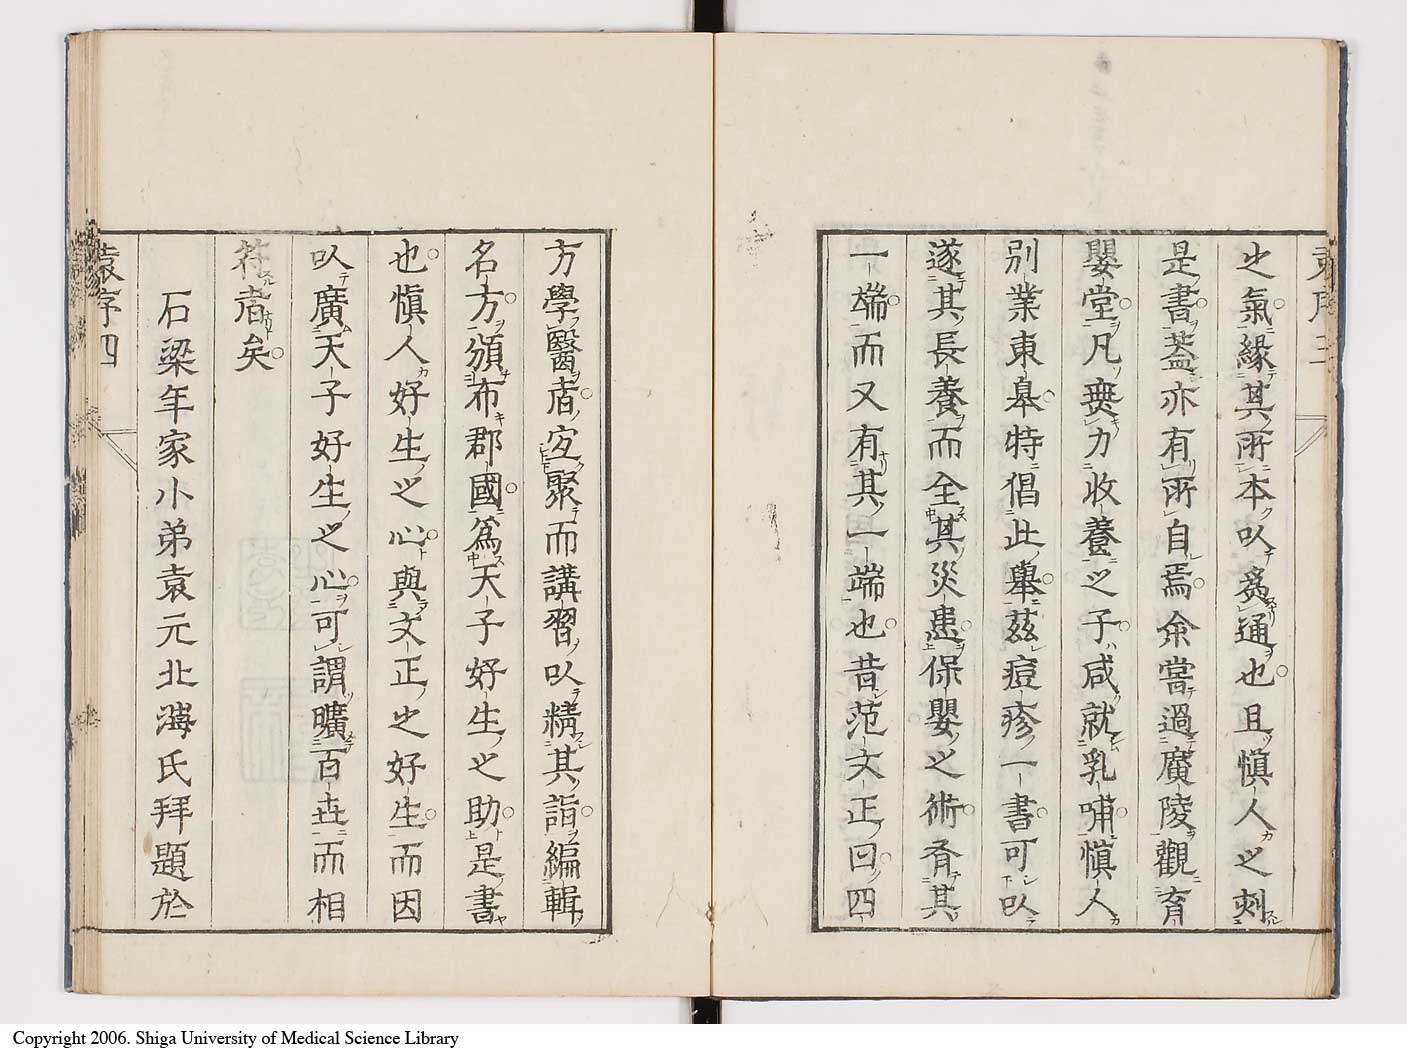 之氣緣其所本以爲通也且愼人之刺
是書葢亦有所自焉余嘗過廣陵觀育
嬰堂凡無力收養之子咸就乳哺愼人
別業東皋特倡此舉茲痘疹一書可以
遂其長養而全其災患保嬰之術脊其
一端而又有其一端也昔范文正曰四
方學醫者宐聚而講習以精其詣編輯
名方頒布郡國爲天子好生之助是書
也愼人好生之心與文正之好生而因
以廣天子好生之心可謂曠百世而相
符者矣
石梁年家小弟袁元北海氏拜題於
袁序四
Copyright 2006. Shiga University of Medical Science Library